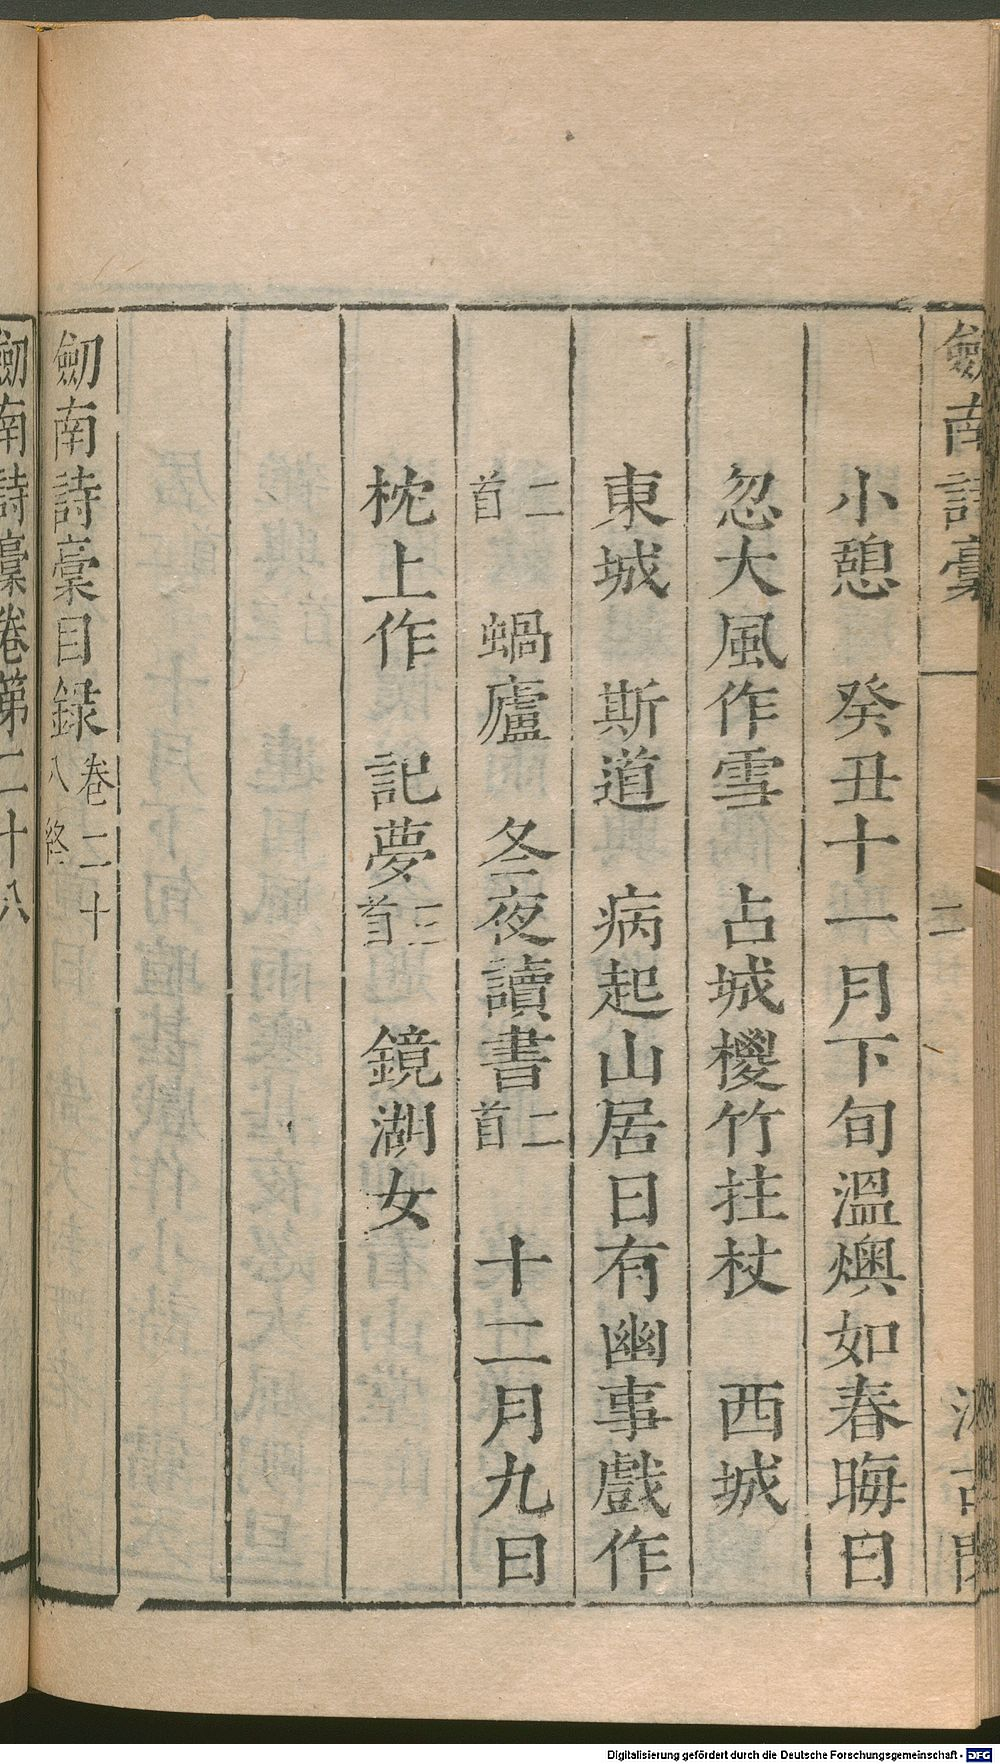 劒南詩稾
二
汲古閣
小憩 癸丑十一月下旬溫燠如春晦日
忽大風作雪 占城椶竹拄杖 西城
東城 斯道 病起山居日有幽事戲作
二首 蝸廬 冬夜讀書二首 十二月九日
枕上作 記夢三首 鏡湖女
劒南詩稾目録卷二十八終
劒南詩稾卷第二十八
Digitalisierung gefördert durch die Deutsche Forschungsgemeinschaft - DFG